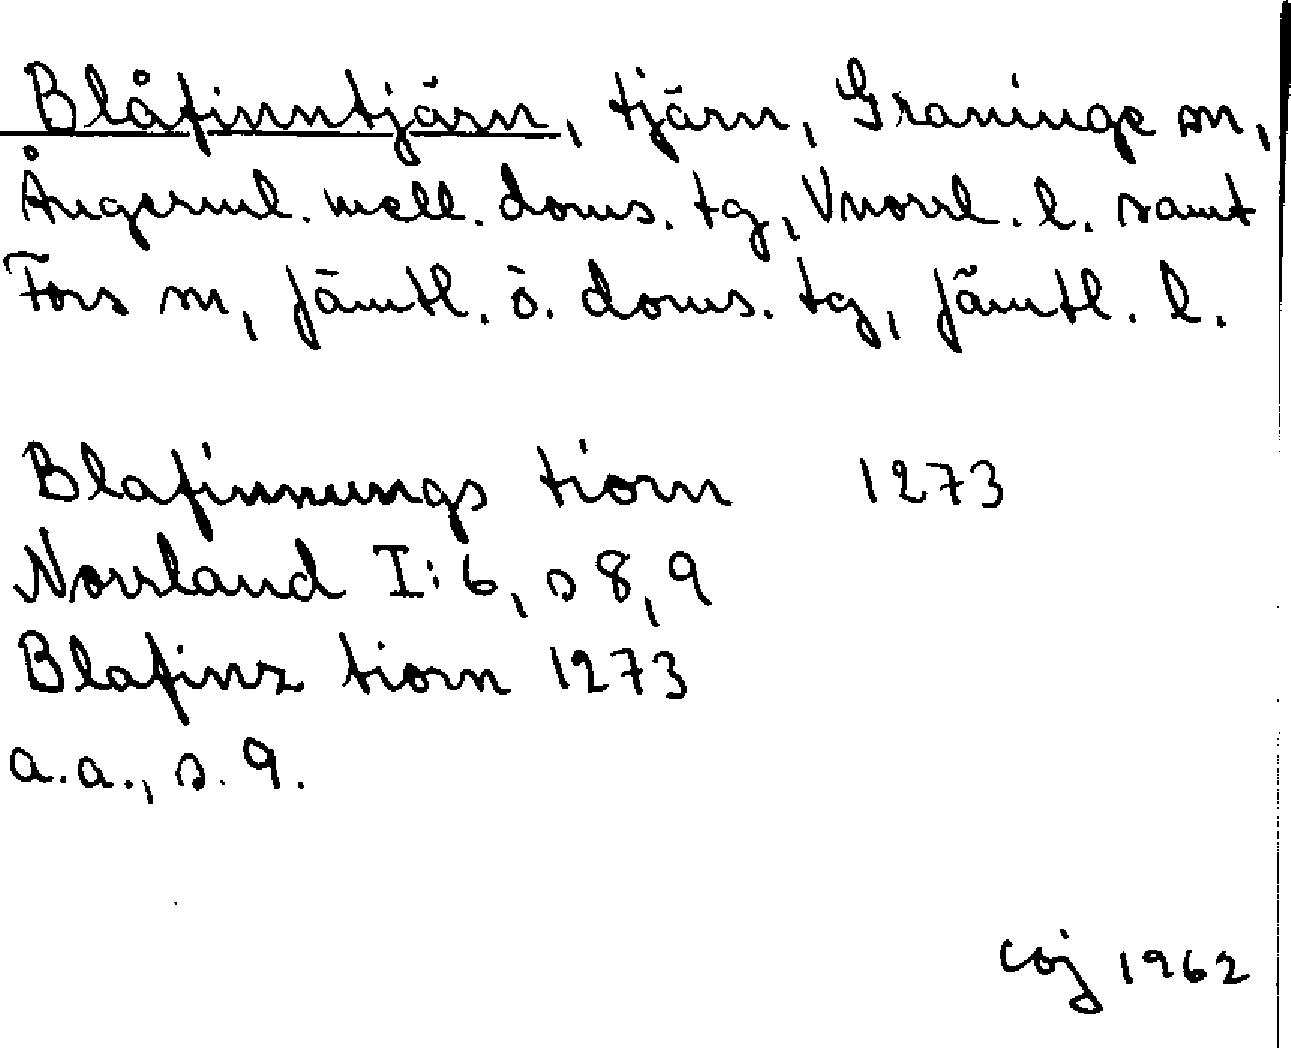 Blåfinntjärn, tjärn, Graninge sn,
Ångerml. mell. doms. tg, Vnorrl. l. samt
Fors sn, Jämtl. ö. doms. tg, Jämtl. l.
Blafinnungs tiorn 1273
Norrland I:6, s 8, 9
Blafinz tiorn 1273
a.a., s. 9.
coj 1962